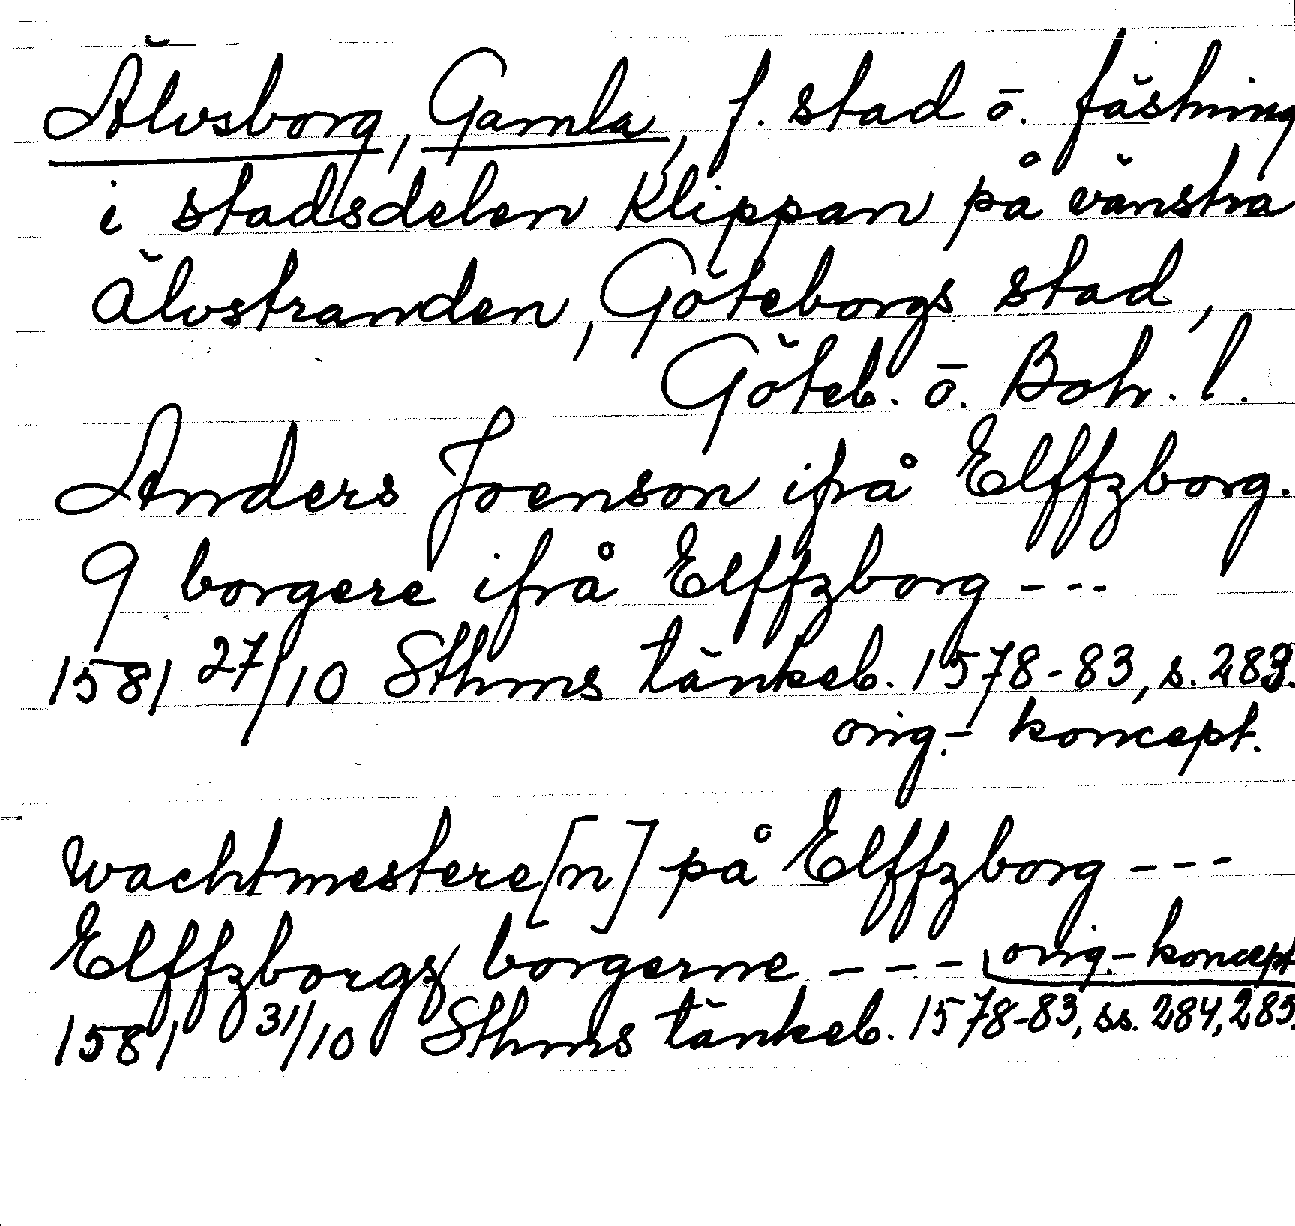 Älvsborg, Gamla, f. stad ö. fästning
i stadsdelen Klippan på vänstra
älvstranden, Göteborgs stad,
Göteb. ö. Boh. l.
Anders Joenson ifrå Elffzborg.
9 borgere ifrå Elffzborg ---
1581 27/10 Sthms tänkeb. 1578-83, s. 283.
orig.- koncept.
wachtmestere[n] på Elffzborg ---
Elffzborgz borgerne --- orig.- koncept
1581 31/10 Sthms tänkeb. 1578-83, ss. 284, 285.